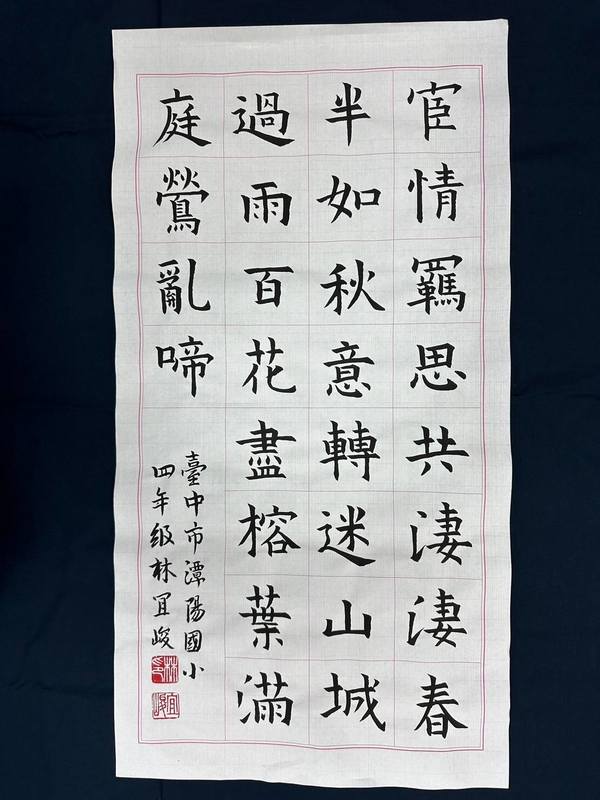 宦情羈思共淒淒春
半如秋意轉迷山城
過雨百花盡榕葉滿
庭鶯亂啼
臺中市潭陽國小
四年級林宜峻
林印
宜峻